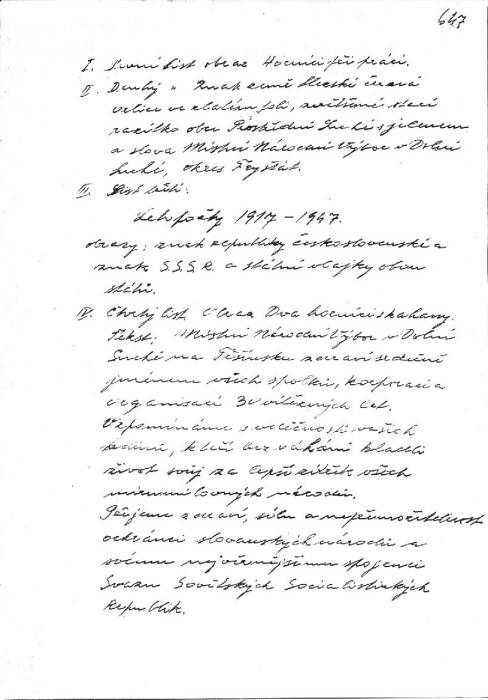 647
I. První list obraz Horníci při práci.
II. Druhý " Znak země Slezské černá
orlice ve zlatém poli, zvětšené staré
razítko obce Prostřední Suché s jelenem
a slova Místní Národní Výbor v Dolní
Suché, okres Fryštát.
III. List
Letopočty 1917 – 1947.
obrazy: znak republiky československé a
znak S.S.S.R. a státní vlajky obou
států.
IV. Čtvrtý list. Obraz Dva horníci s kahany.
Tekst. Místní Národní Výbor v Dolní
Suché na Těšínsku zdraví srdečně
jménem všech spolků, korporací a
organisací 30 vítězných let.
Vzpomínáme s vděčností vašich
hrdinů, kteří bez váhání kladli
život svůj za lepší zítřek všech
mírumilovných národů.
Přejeme zdraví, sílu a nepřemožitelnost
ochránci slovanských národů a
svému nejvěrnějšímu spojenci
Svazu Sovětských Socialistických
Republik.